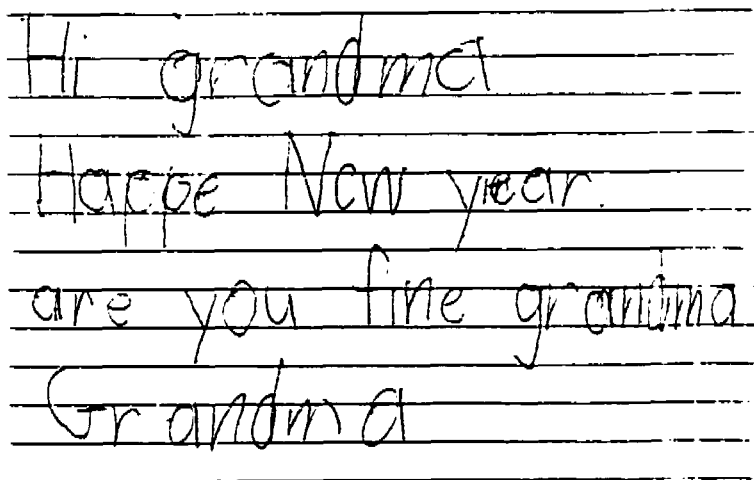 Hi grandma
Happe New year.
are you fine grandma
Grandma